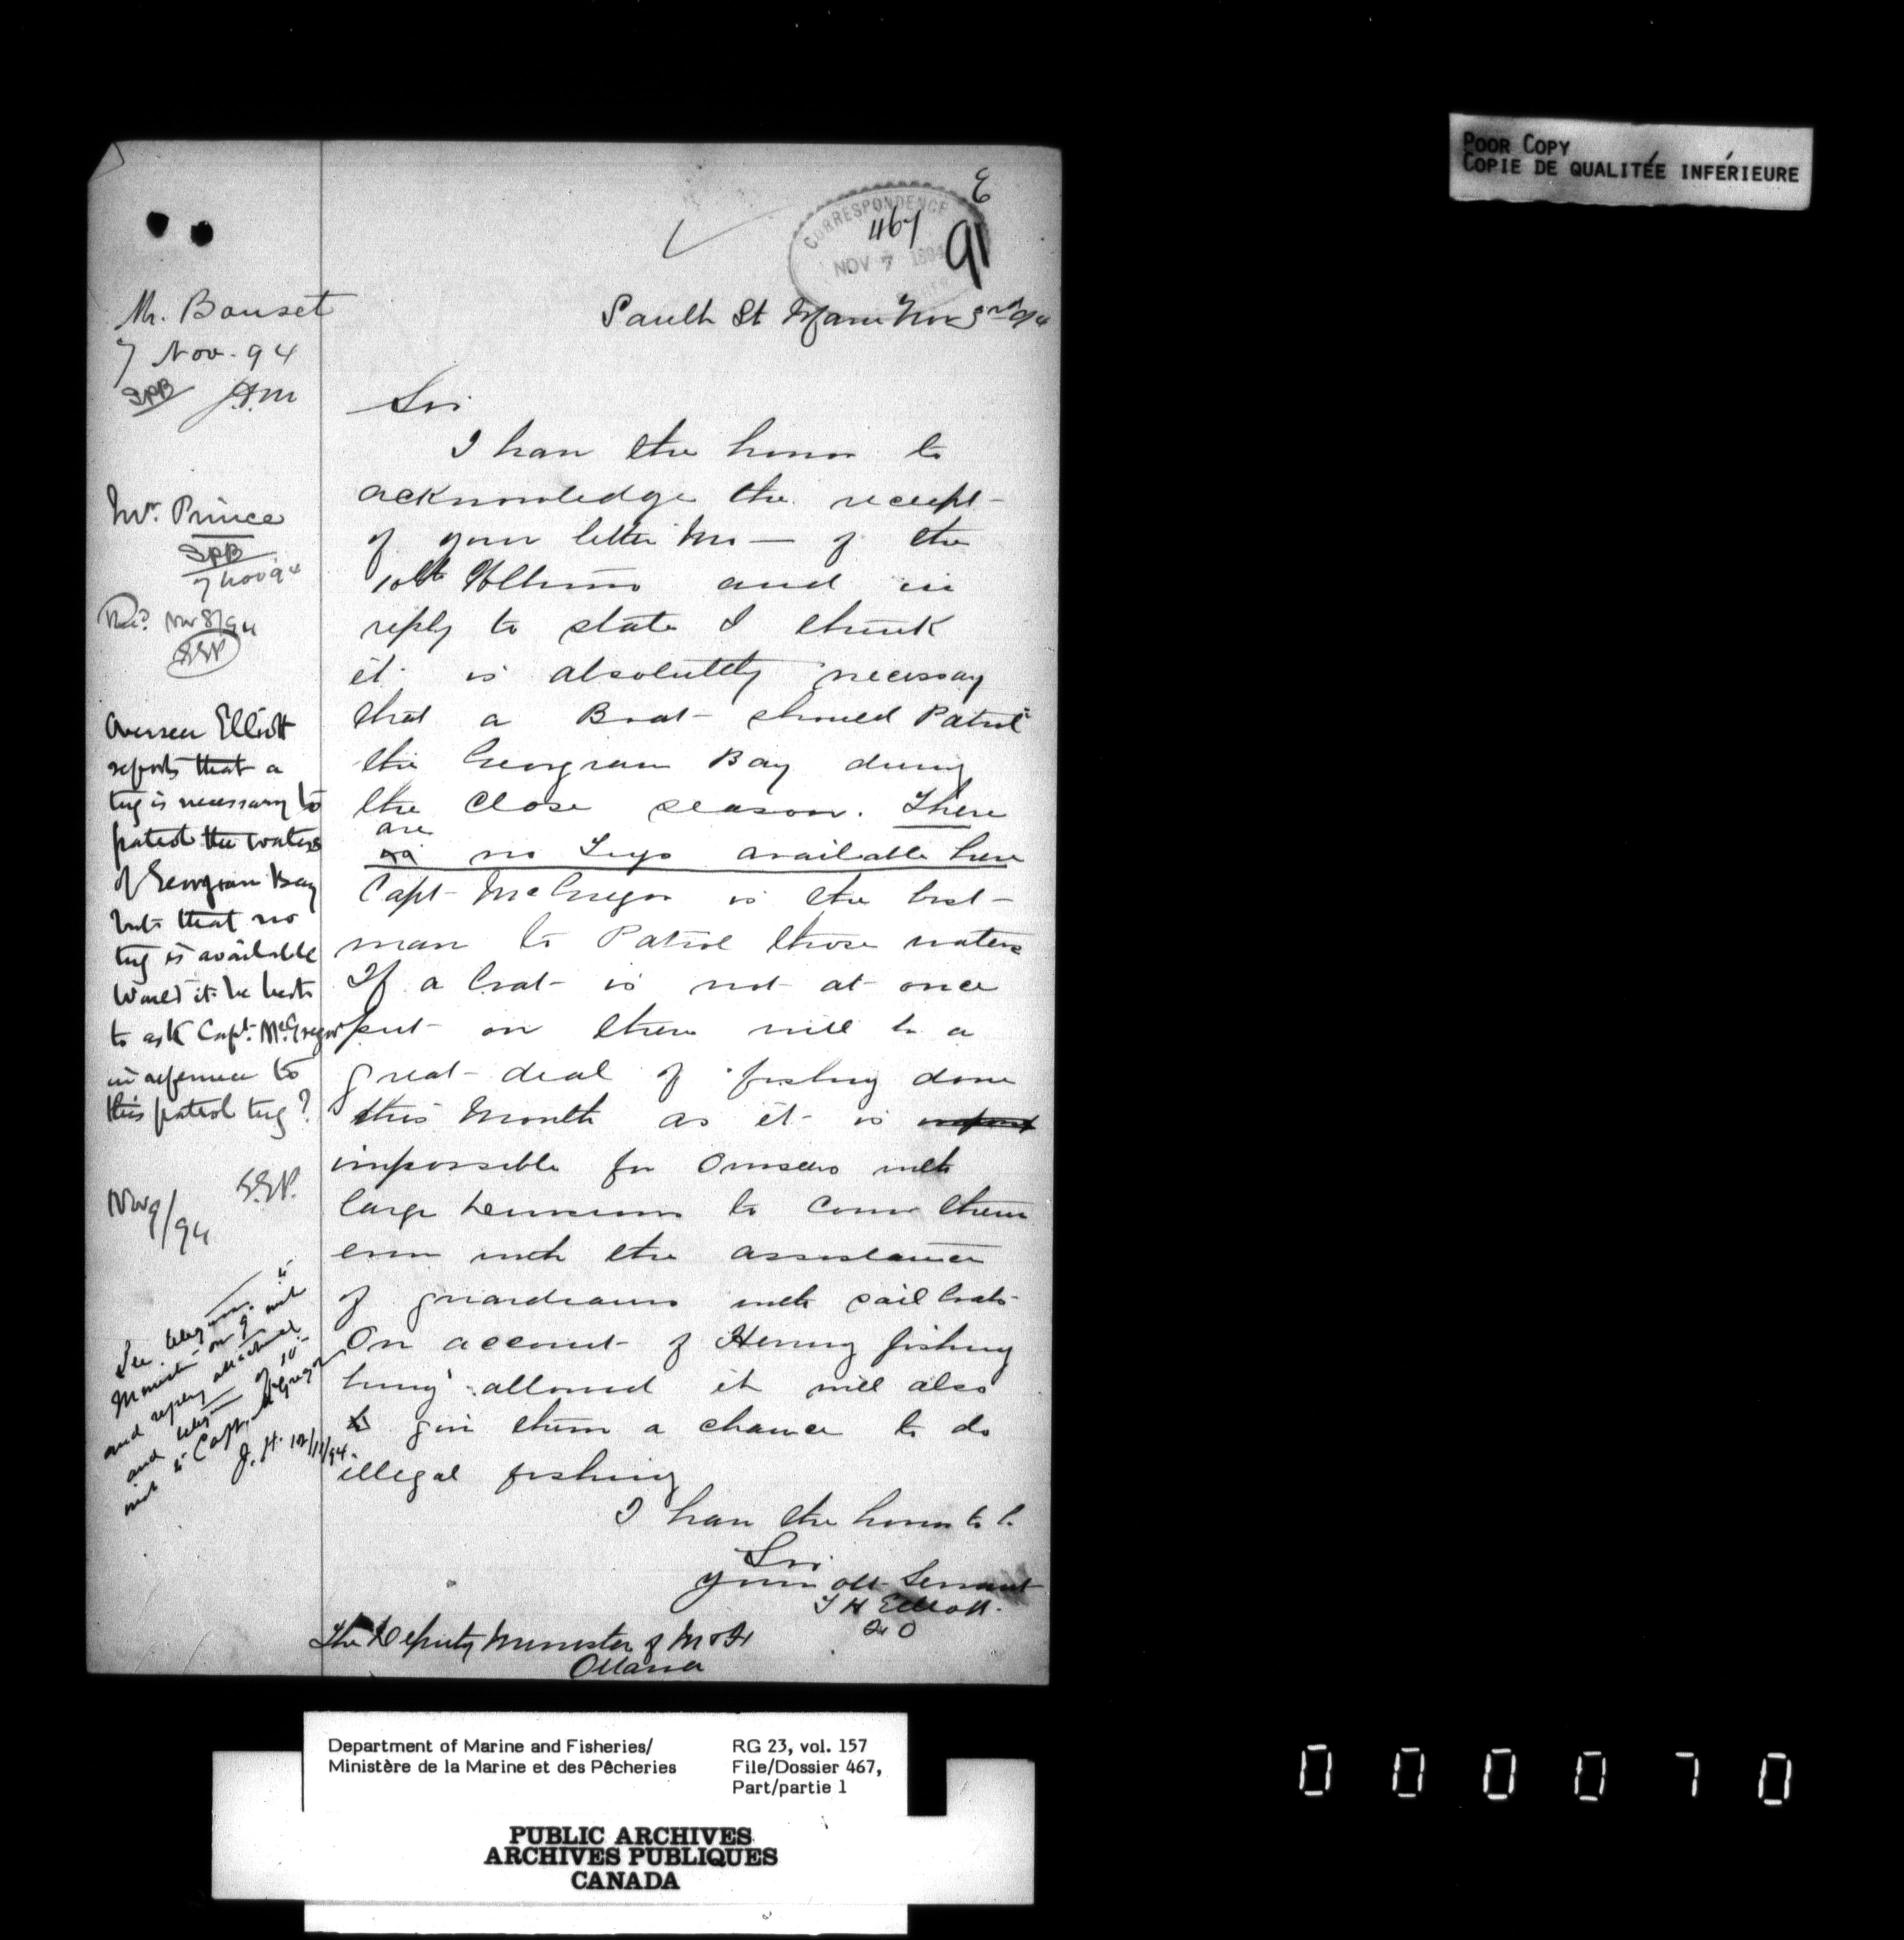 POOR COPY
COPIE DE QUALITÉE INFÉRIEURE
E
CORRESPONDENCE
467
NOV 7 1894
91
Sault St Marie Nov 3rd 94
Sir
I have the honor to
acknowledge the receipt
of your letter No — of the
10th Ultimo and in
reply to state I think
it is absolutely necessary
that a Boat should Patrol
the Georgian Bay during
the close season. There
are
no Tugs available here
Capt McGregor is the best
man to Patrol those waters
If a boat is not at once
put on there will be a
great deal of fishing done
this Month as it is
impossible for Overseers with
large to cover them
even with the assistance
of guardians with sail boats
On account of Herring fishing
being allowed it will also
give them a chance to do
illegal fishing
I have the honor to be
Sir
Your obt Servant
T H Elliott.
F O
The Deputy Minister of M & F
Ottawa
Mr. Bauset
7 Nov. 94
Mr. Prince
7 Nov 94
Nov 8/94
Overseer Elliott
reports that a
tug is necessary to
patrol the waters
of Georgian Bay
but that no
tug is available
Would it be best
to ask Capt. McGregor
in reference to
this patrol tug?
E.E.P.
Nov 9/94
See telegram to
Minister on 9 inst
and reply attached
and telegram of 10
inst to Capt. McGregor
J. H. 12/11/94.
Department of Marine and Fisheries/
Ministère de la Marine et des Pêcheries
RG 23, vol. 157
File/Dossier 467,
Part/partie 1
PUBLIC ARCHIVES
ARCHIVES PUBLIQUES
CANADA
000070